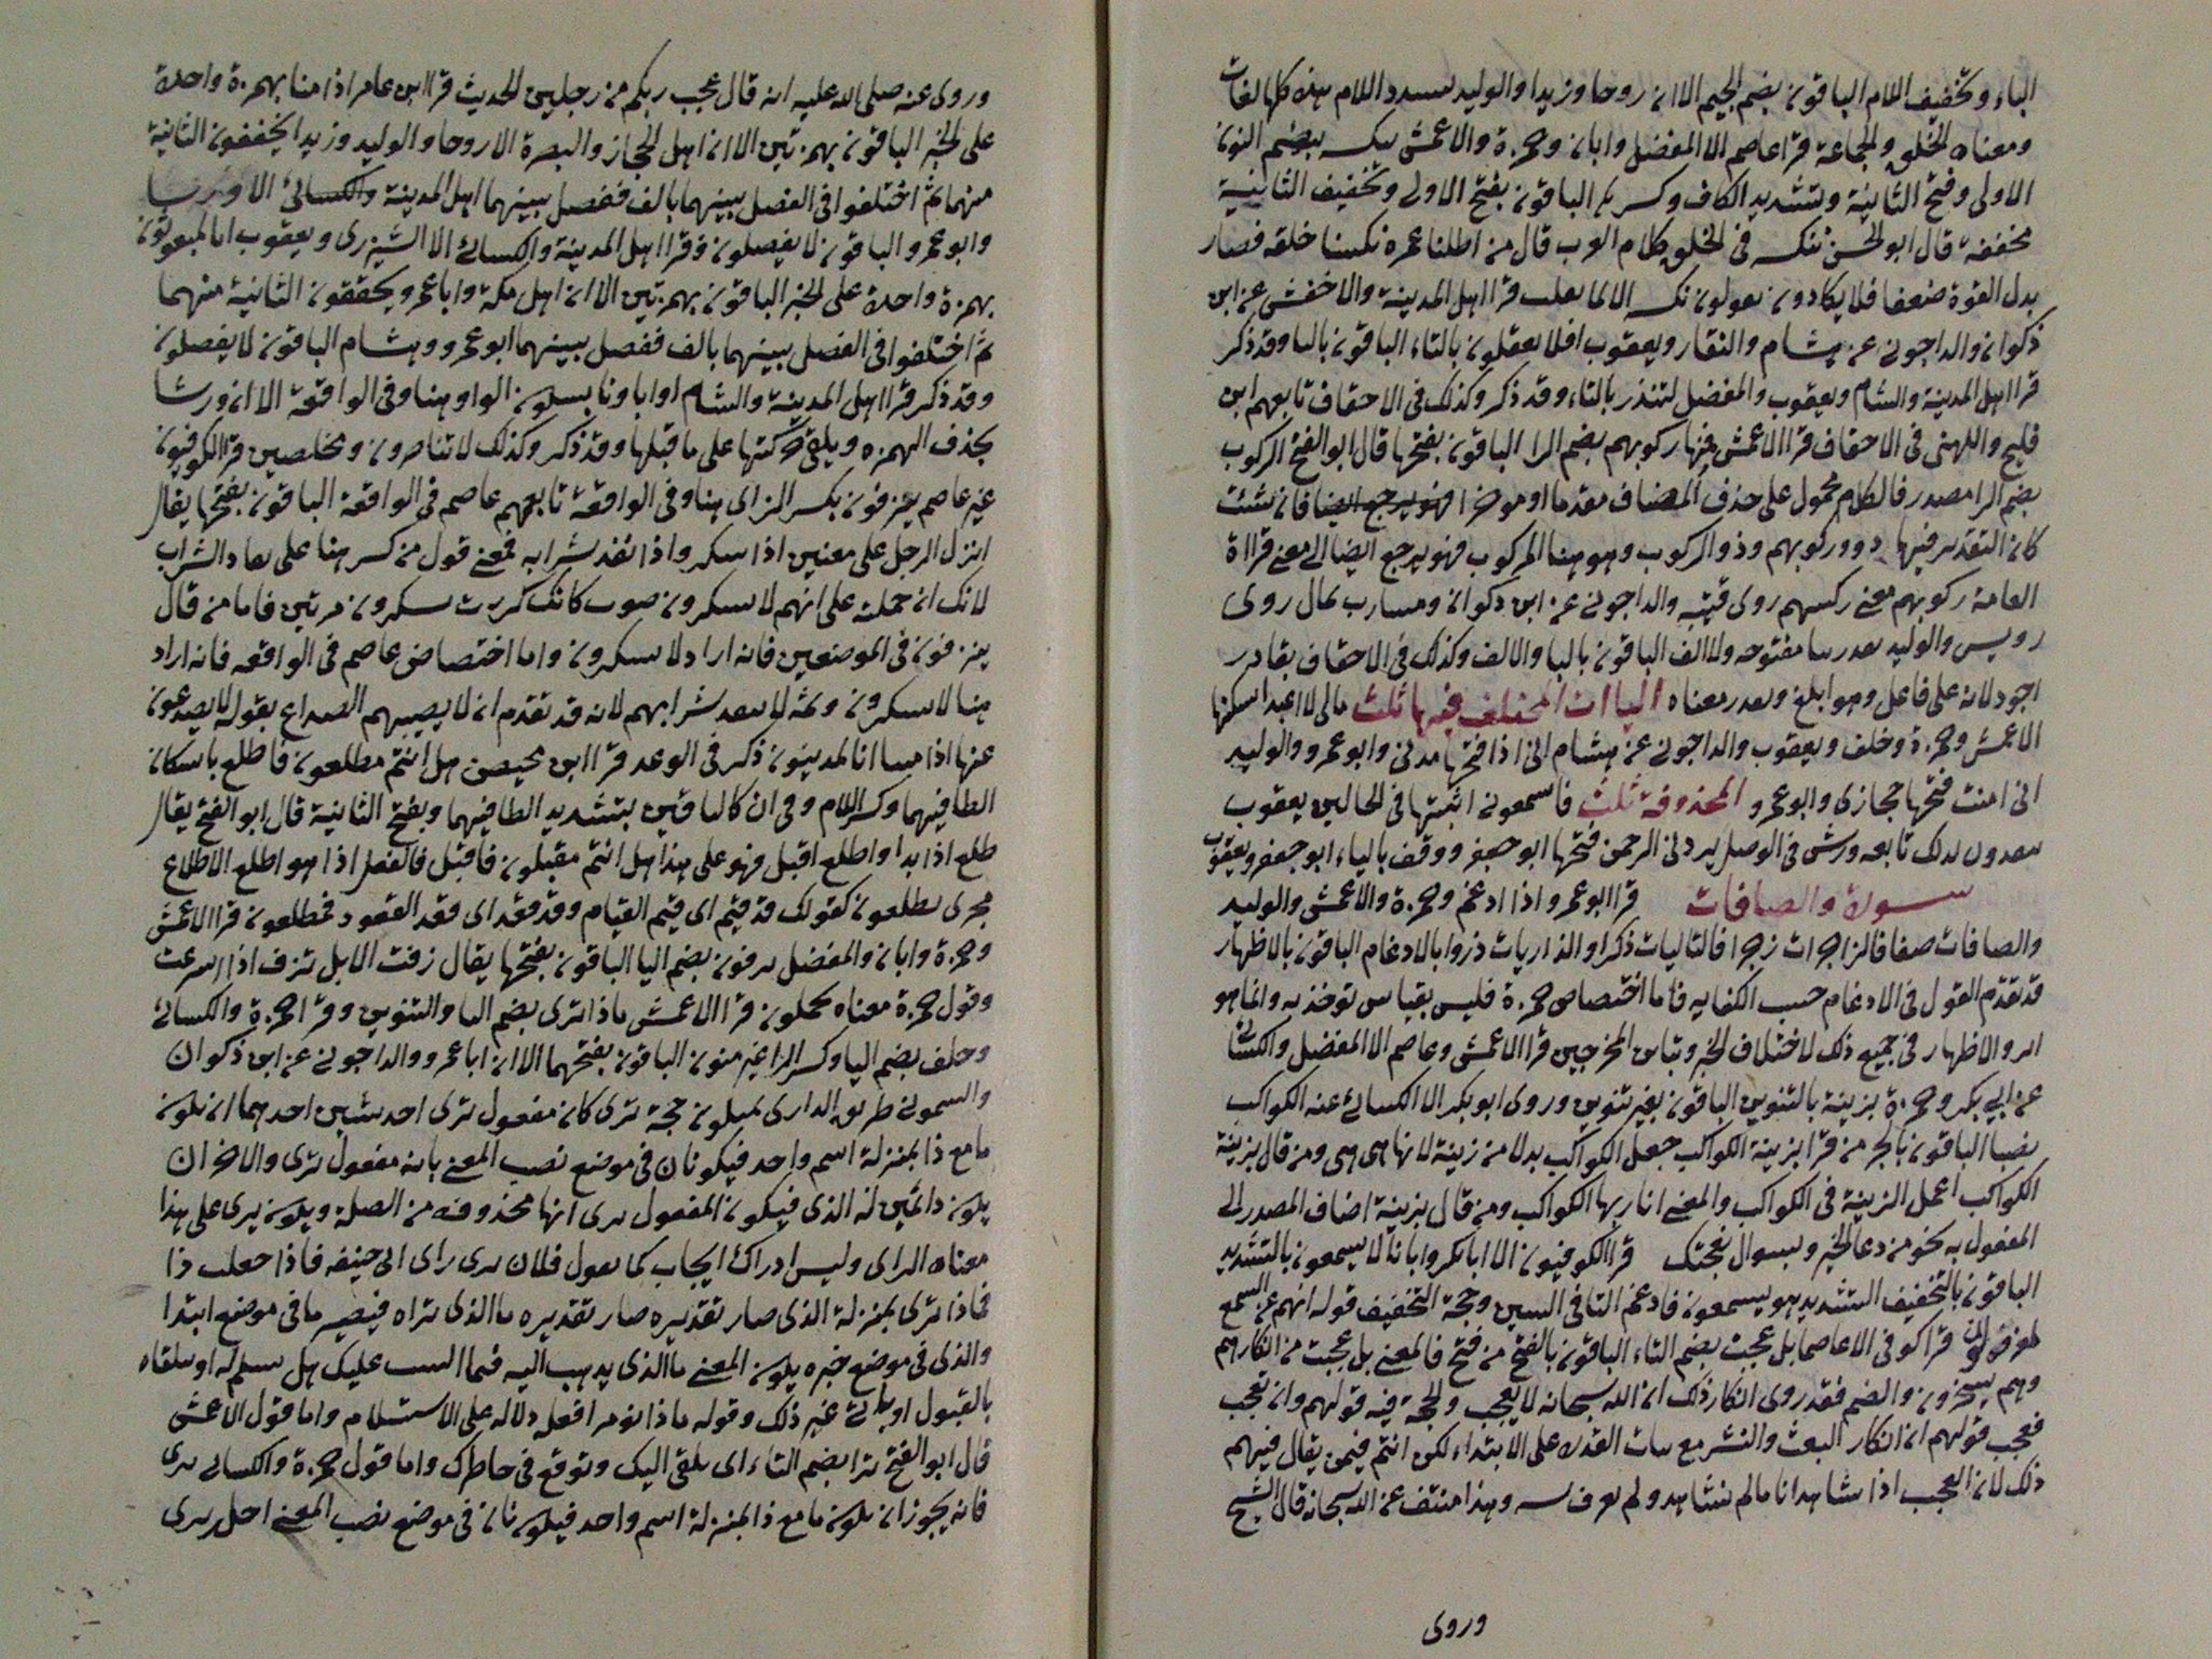 الباء وتخفيف اللام الباقون بضم الجيم الا ان روحا وزيدا والوليد يسدد اللام هذه كلها لغات
ومعناه الخلق والجماعة قرا عاصم الا المفضل وابان وحمزة والاعمش ننكسه بضم النون
الاولى وفتح الثانية وتشديد الكاف وكسرها الباقون بفتح الاولى وتخفيف الثانية
مخففة قال ابو الحسن ننكسه في الخلق كلام العرب قال من اطلنا عمره نكسنا خلقه فصار
بدل القوة ضعفا فلا يكادون يقولون نكسه الا لما يقلب قرا اهل المدينة والاخفش عن ابن
ذكوان والداجوني عن هشام والنقار ويعقوب افلا يعقلون بالتاء الباقون باليا وقد ذكر
قرا اهل المدينة والشام ويعقوب والمفضل لتنذر بالتاء وقد ذكر وكذلك في الاحقاف تابعهم ابن
فليح واللهبي في الاحقاف قرا الاعمش فمنها ركوبهم بضم الرا الباقون بفتحها قال ابو الفتح الركوب
بضم الرا مصدر فالكلام محمول على حذف المضاف مقدما او موخرا فهو يرجع ايضا فان شئت
كان التقدير فيها ذو وركوبهم وذو الركوب وهو هنا المركوب فهو يرجع ايضا الى معنى قراة
العامة ركوبهم معنى ركبهم روى قتيبة والداجوني عن ابن ذكوان ومشارب يمال روى
رويس والوليد يقدر بيا مفتوحه ولا الف الباقون بالبا والالف وكذلك في الاحقاف بقادر
اجود لانه على فاعل وهو ابلغ ويقدر معناه الياات المختلف فيها ثلث مالي لا اعبد اسكنها
الاعمش وحمزة وخلف ويعقوب والداجوني عن هشام اني اذا فتحها مدني وابو عمرو والوليد
اني امنت فتحها حجازي وابو عمرو المحذوفة ثلث فاسمعوني اثبتها في الحالين يعقوب
ينقذون كذلك تابعه ورش في الوصل يردني الرحمن فتحها ابو جعفر ووقف بالياء ابو جعفر ويعقوب
سورة والصافات قرا ابو عمرو اذا ادغم وحمزة والاعمش والوليد
والصافات صفا فالزاجرات زجرا فالتاليات ذكرا والذاريات ذروا بالادغام الباقون بالاظهار
قد تقدم القول في الادغام حسب الكفايه فاما اختصاص حمزة فليس بقياس توخذ به وانما هو
اثر والاظهار في جميع ذلك لاختلاف الحيز وتباين المخرجين قرا الاعمش وعاصم الا المفضل والكسائي
عن ابي بكر وحمزة بزينة بالتنوين الباقون بغير تنوين وروى ابو بكر الا الكسائي عنه الكواكب
نصبا الباقون بالجر من قرا بزينة الكواكب جعل الكواكب بدلا من زينة لانها هي هي ومن قال بزينة
الكواكب اعمل الزينة في الكواكب والمعنى انا ربها الكواكب ومن قال بزينة اضاف المصدر الى
المفعول به نحو من دعا الخير وبسوال نعجتك قرا الكوفيون الا ابا بكر وابانا لا يسمعون بالتشديد
الباقون بالتخفيف التشديد هو ليتسمعون فادغم التا في السين وحجة التخفيف قوله انهم عن السمع
لمعزولون قرا كوفي الا عاصما بل عجبت بضم التاء الباقون بالفتح من فتح فالمعنى بل عجبت من انكارهم
وهم يسخرون والضم فقد روى انكار ذلك ان الله سبحانه لا يعجب والحجة فيه قولهم وان تعجب
فعجب قولهم ان انكار البعث والنشر مع ثبات القدرة على الابتداء لكن انتم فيمن يقال فيهم
ذلك لان العجب اذا شاهدنا ما لم نشاهد ولم نعرف سببه وهذا منتف عن الله سبحانه قال الشيخ
وروى
وروى عنه صلى الله عليه انه قال عجب ربكم من رجلين الحديث قرا ابن عامر اذا متنا بهمزة واحدة
على الخبر الباقون بهمزتين الا ان اهل الحجاز والبصرة الا روحا والوليد وزيدا يخففون الثانية
منهما ثم اختلفوا في الفصل بينهما بالف ففصل بينهما اهل المدينة والكسائي الا ورشا
وابو عمرو والباقون لا يفصلون وقرا اهل المدينة والكسائي الا الشيزري ويعقوب انا لمبعوثون
بهمزة واحدة على الخبر الباقون بهمزتين الا ان اهل مكة وابا عمرو يحققون الثانية منهما
ثم اختلفوا في الفصل بينهما بالف ففصل بينهما ابو عمرو وهشام الباقون لا يفصلون
وقد ذكر قرا اهل المدينة والشام اواباونا بسكون الواو هنا وفي الواقعة الا ان ورشا
يحذف الهمزه ويلقي حركتها على ما قبلها وقد ذكر وكذلك لا تناصرون ومخلصين قرا الكوفيون
غير عاصم ينزفون بكسر الزاى هنا وفي الواقعة تابعهم عاصم في الواقعة الباقون بفتحها يقال
انزف الرجل على معنيين اذا سكر واذا نفد شرابه فمعنى قول من كسر هنا على نفاد الشراب
لانك ان حملته على انهم لا يسكرون صرت كانك كررت يسكرون مرتين فاما من قال
ينزفون في الموضعين فانه اراد لا يسكرون واما اختصاص عاصم في الواقعه فانه اراد
هنا لا يسكرون وثم لا ينفد شرابهم لانه قد تقدم ان لا يصيبهم الصداع بقوله لا يصدعون
عنها اذا متنا انا لمدينون ذكر في الوعد قرا ابن محيصن هل انتم مطلعون فاطلع باسكان
الطا فيهما وكسر اللام وفي ان كالباقين بتشديد الطا فيهما وبفتح الثانية قال ابو الفتح يقال
طلع اذا بدا واطلع اقبل فهو على هذا هل انتم مقبلون فاقبل فالفعل اذا هو اطلع الاطلاع
مجرى يطلعون كقولك قد قيم اى قيم القيام وقد قعد اى قعد القعود فمطلعون قرا الاعمش
وحمزة وابان والمفضل يزفون بضم اليا الباقون بفتحها يقال زفت الابل تزف اذا اسرعت
وقول حمزة معناه يحملون قرا الاعمش ماذا ترى بضم التا والتنوين وقرا حمزة والكسائي
وخلف بضم اليا وكسر الرا غير منون الباقون بفتحهما الا ان ابا عمرو والداجوني عن ابن ذكوان
والسموني طريق الدارى يميلون حجة ترى كان مفعول ترى احد شيين احدهما ان يكون
ما مع ذا بمنزلة اسم واحد فيكونان في موضع نصب المعنى بانه مفعول ترى والاخر ان
يكون ذا بمنزلة الذي فيكون المفعول يرى انها محذوفه من الصلة ويكون يرى على هذا
معناه الراى وليس ادراك ايجاب كما يقول فلان يرى راى ابي حنيفه فاذا جعلت ذا
في ماذا ترى بمنزلة الذي صار تقديره صار تقديره ما الذي تراه فيصير ما في موضع ابتدا
والذي في موضع خبره يكون المعنى ما الذي يذهب اليه فيما القيت عليك هل يستسلم له او يتلقاه
بالقبول او ياتي غير ذلك وقوله ماذا تومر افعل دلاله على الاستسلام واما قول الاعمش
قال ابو الفتح ترا بضم التاء اى يلقى اليك وتوقع في خاطرك واما قول حمزة والكسائي يرى
فانه يجوز ان يكون ما مع ذا بمنزلة اسم واحد فيكونان في موضع نصب المعنى